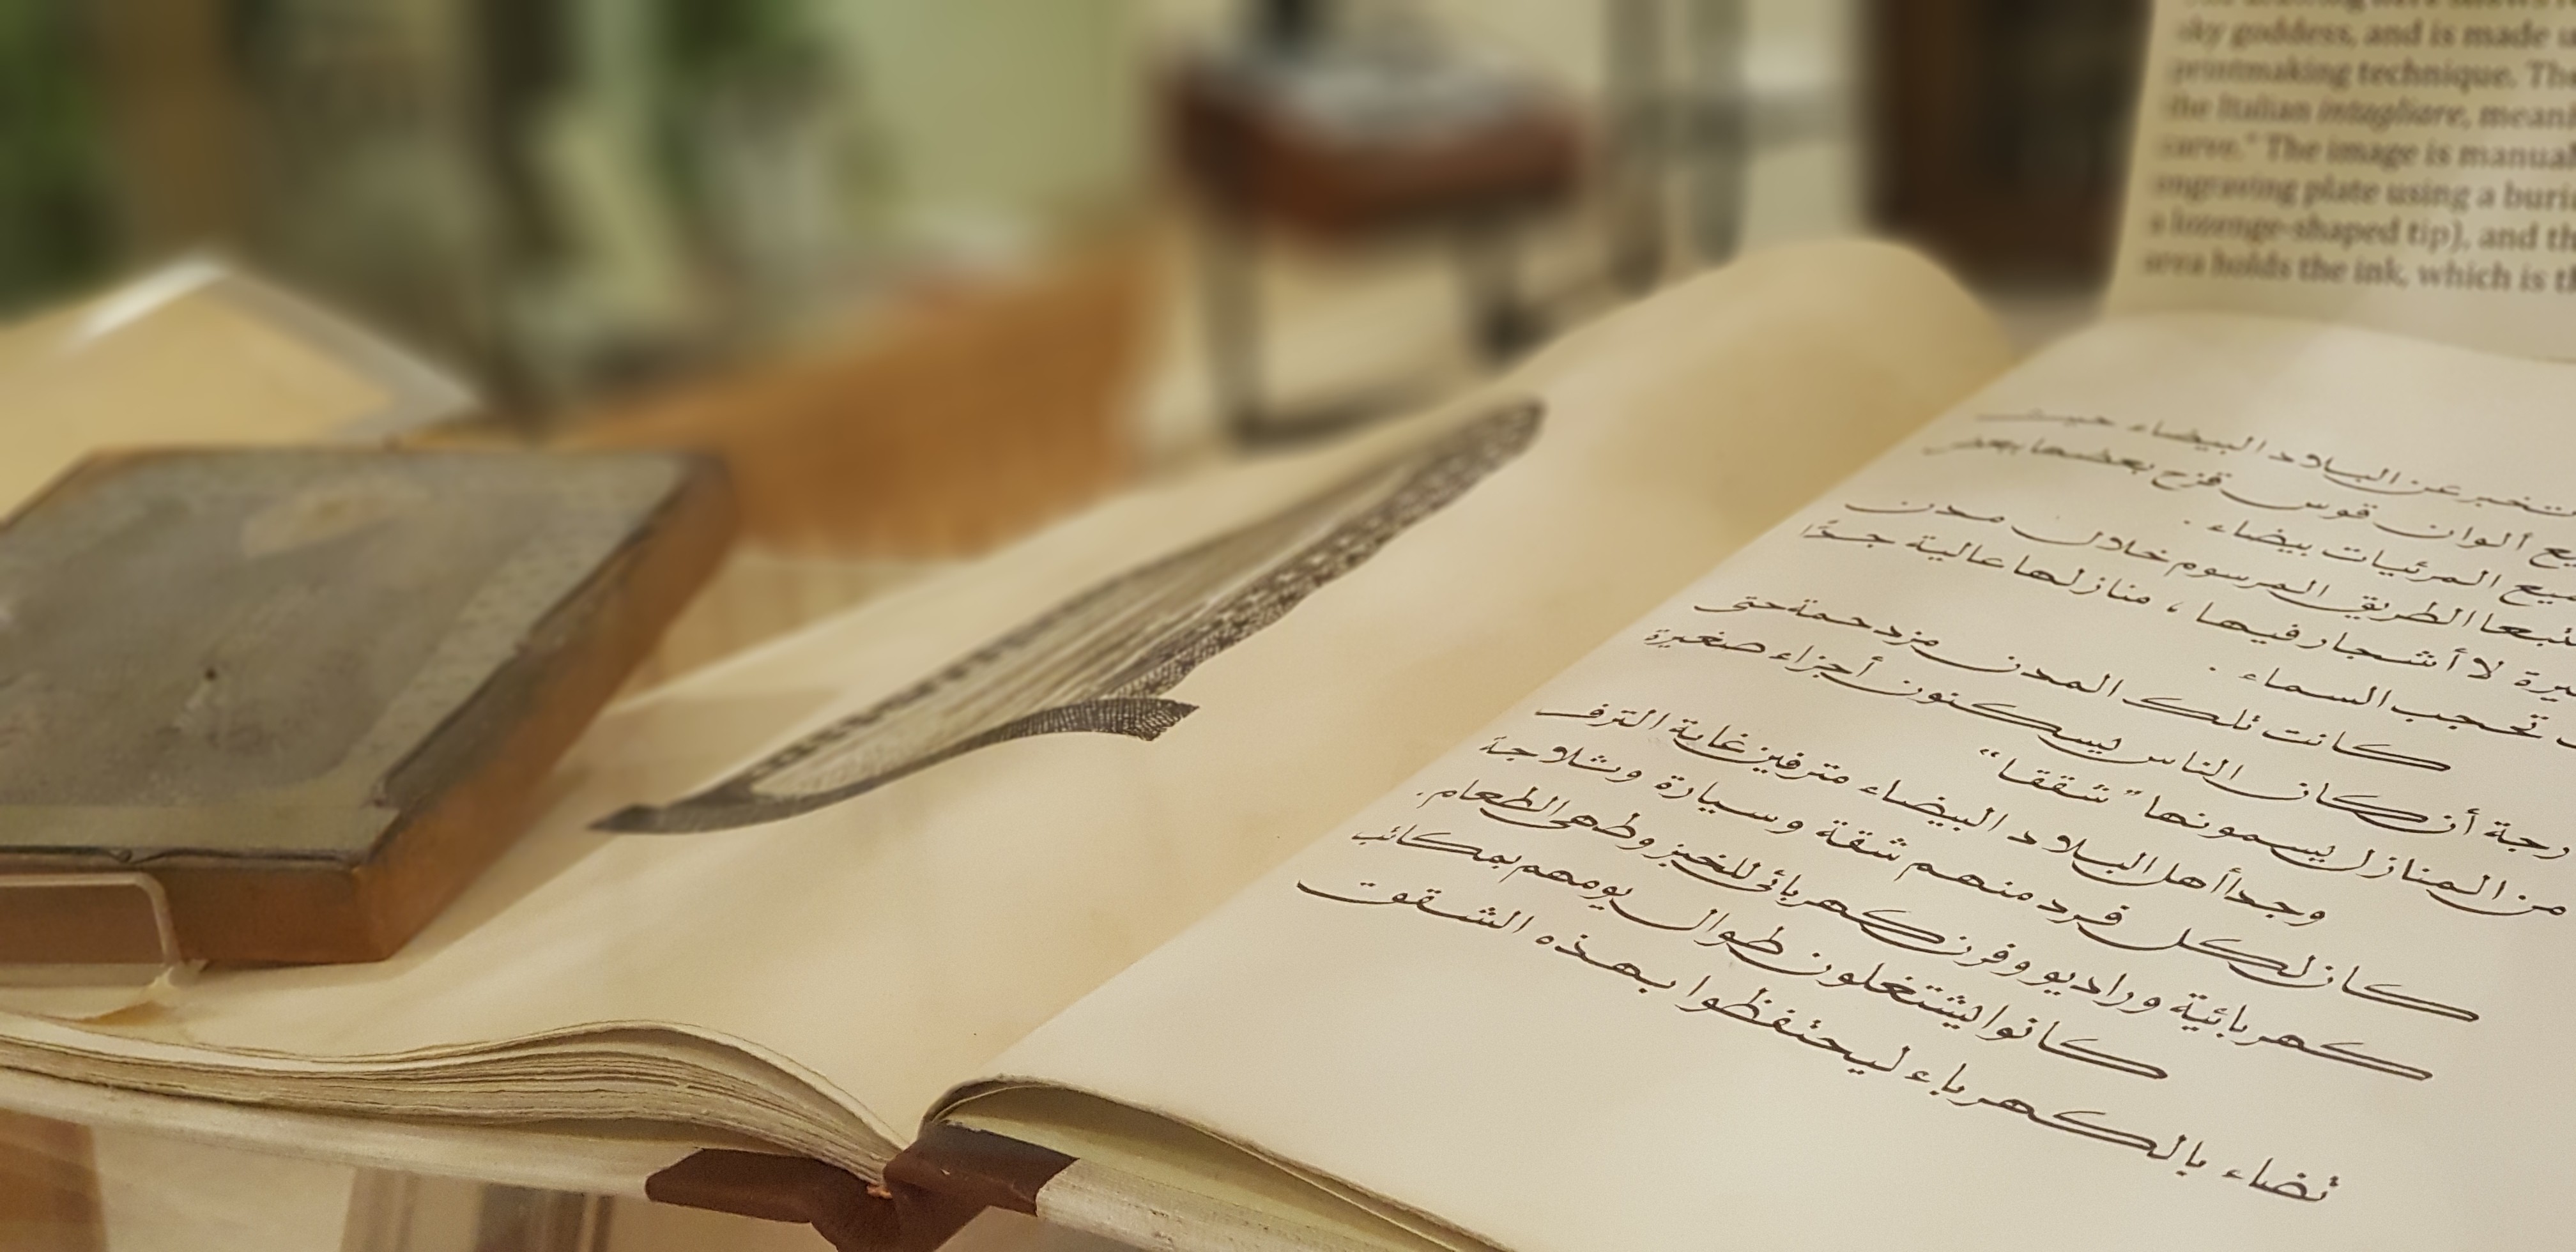 sky goddess, and is made
printmaking technique.
the Italian intagliare,
The image is manual
engraving plate using a
a lozenge-shaped tip), and
area holds the ink, which is
عن البلاد البيضاء حين
ألوان قوس قزح بعضها بعد
المرئيات بيضاء.
الطريق المرسوم خلال مدن
لا أشجار فيها، منازلها عالية جدًا
تحجب السماء.
كانت تلك المدن مزدحمة حتى
أن كان الناس يسكنون أجزاء صغيرة
من المنازل يسمونها "شققا"
وجدا أهل البلاد البيضاء مترفين غاية الترف
كان لكل فرد منهم شقة وسيارة وثلاجة
كهربائية وراديو وفرن كهربائى للخبز وطهى الطعام.
كانوا يشتغلون طوال يومهم بمكاتب
تضاء بالكهرباء ليحتفظوا بهذه الشقق